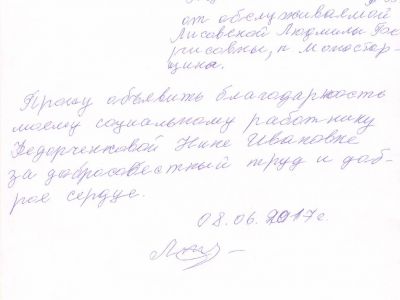 от обслуживаемой
Лисовской Людмилы Бо-
рисовны, п Монастыр-
щина.
Прошу объявить благодарность
моему социальному работнику
Федорченковой Нине Ивановне
за добросовестный труд и доб-
рое сердце.
08.06.2017г.